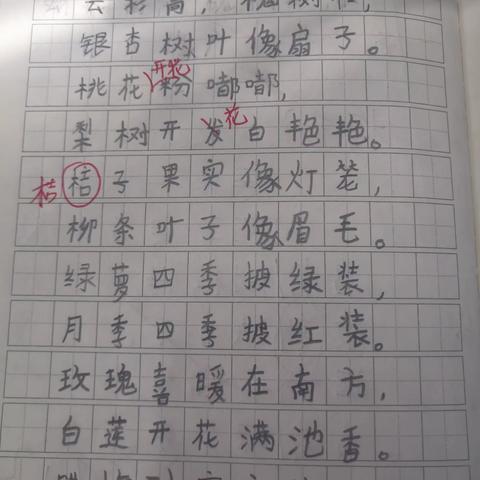 银杏树叶像扇子。
开花
桃花粉嘟嘟,
花
梨树开发白艳艳。
桔桔子果实像灯笼,
柳条叶子像眉毛。
绿萝四季披绿装,
月季四季披红装。
玫瑰喜暖在南方,
白莲开花满池香。